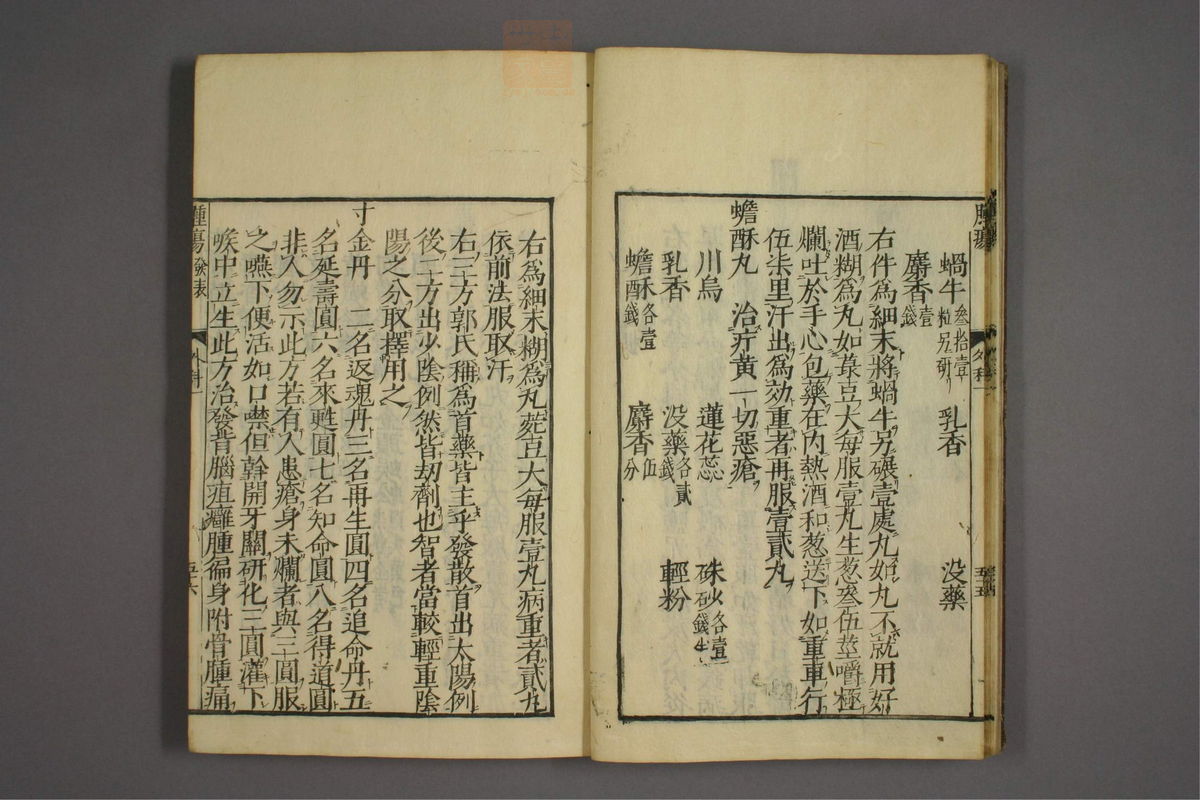 腫瘍
外科一
五十五
蝸牛叁拾壹粒另研 乳香 没藥
麝香壹錢
右件為細末將蝸牛另碾壹處丸如丸不就用好
酒糊為丸如菉豆大每服壹丸生葱叁伍莖嚼極
爛吐於手心包藥在內熱酒和葱送下如重車行
伍柒里汗出為効重者再服壹貳丸
蟾酥丸 治疔黄一切惡瘡
川烏 蓮花蕊 硃砂各壹錢生
乳香 没藥各貳錢 輕粉
蟾酥各壹錢 麝香伍分
右為細末糊為丸菀豆大每服壹丸病重者貳丸
依前法服取汗
右三方郭氏稱為首藥皆主乎發散首出太陽例
後二方出少陰例然皆劫劑也智者當較輕重陰
陽之分取擇用之
寸金丹 二名返魂丹三名再生圓四名追命丹五
名延壽圓六名來甦圓七名知命圓八名得道圓
非人勿示此方若有人患瘡身未爛者與三圓服
之嚥下便活如口噤但斡開牙關研化三圓灌下
喉中立生此方治發背腦疽癰腫徧身附骨腫痛
腫瘍發表
外科一
五十六